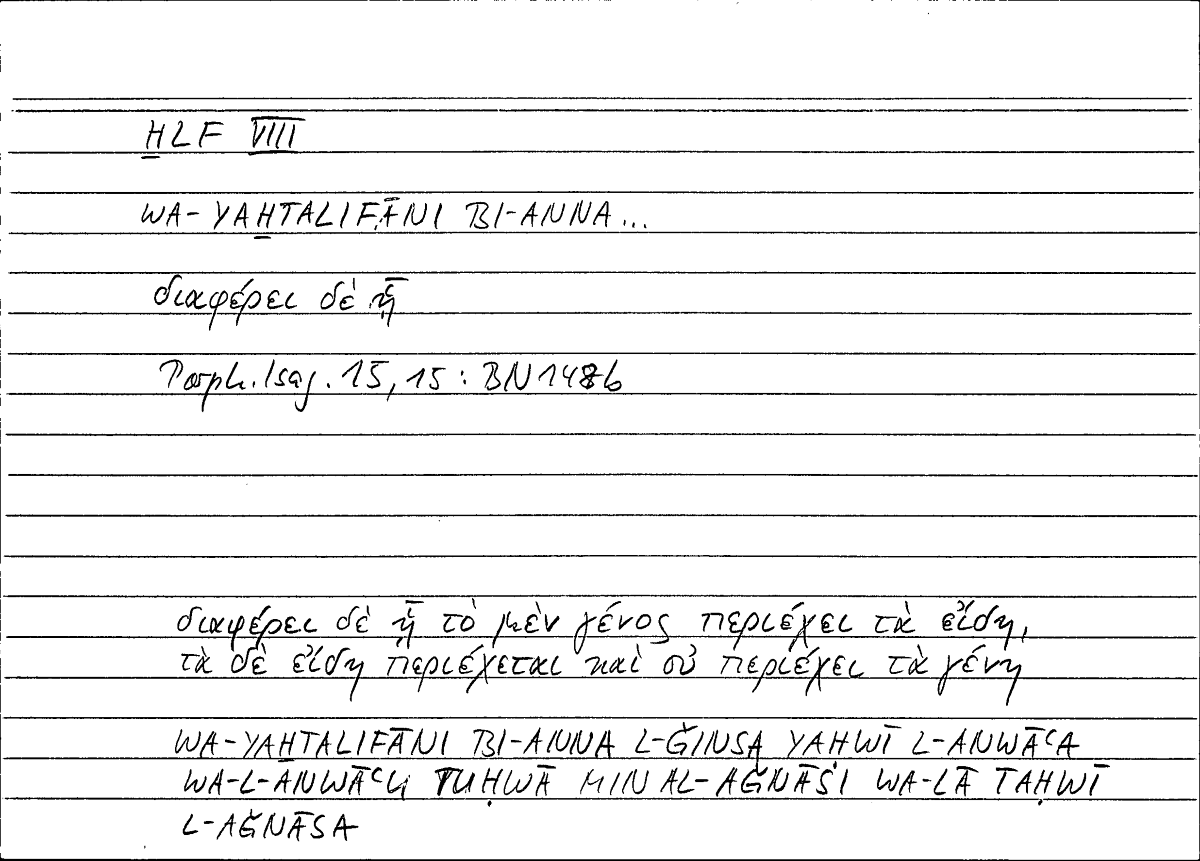 H̱LF VIII
WA-YAH̱TALIFĀNI BI-ANNA...
διαφέρει δὲ ᾗ
Porph. Isag. 15, 15 : BN 148b
διαφέρει δὲ ᾗ τὸ μὲν γένος περιέχει τὰ εἴδη,
τὰ δὲ εἴδη περιέχεται καὶ οὐ περιέχει τὰ γένη
WA-YAH̱TALIFĀNI BI-ANNA L-ǦINSA YAḤWĪ L-ANWĀʿA
WA-L-ANWĀʿU TUḤWĀ MIN AL-AǦNĀSI WA-LĀ TAḤWĪ
L-AǦNĀSA